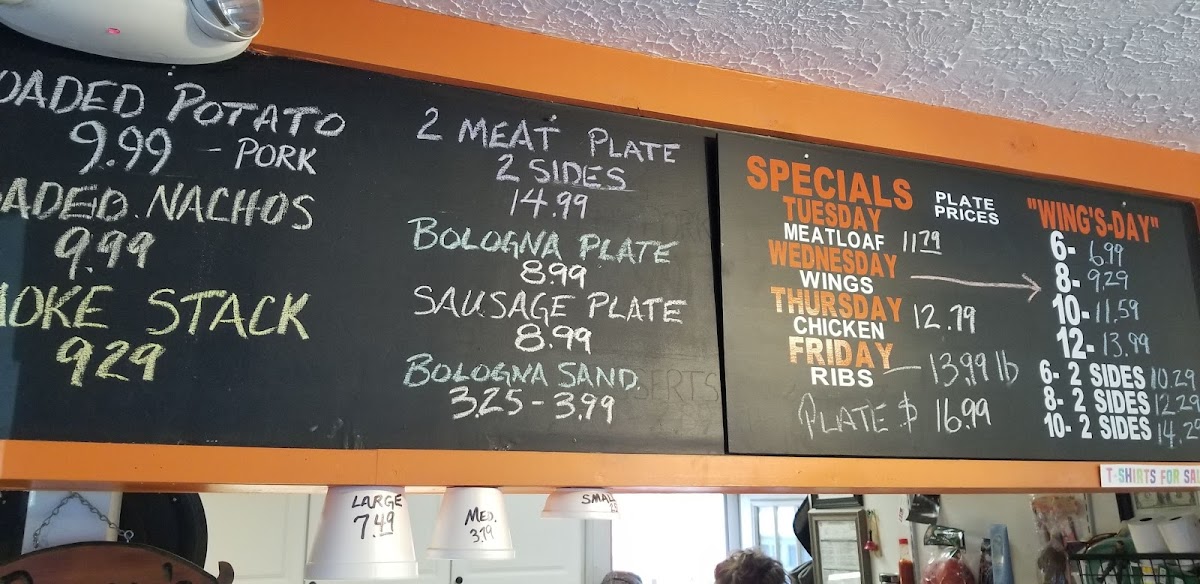 OADED POTATO
9.99 - PORK
ADED NACHOS
9.99
MOKE STACK
929
2 MEAT PLATE
2 SIDES
14.99
BOLOGNA PLATE
8.99
SAUSAGE PLATE
8.99
BOLOGNA SAND.
3.25 - 3.99
SPECIALS
PLATE
PRICES
TUESDAY
MEATLOAF 11.79
WEDNESDAY
WINGS
THURSDAY
CHICKEN 12.79
FRIDAY
RIBS - 13.99 lb
PLATE $ 16.99
"WING'S-DAY"
6- 6.99
8- 9.29
10- 11.59
12- 13.99
6- 2 SIDES 10.29
8- 2 SIDES 12.29
10- 2 SIDES 14.2
T-SHIRTS FOR SA
LARGE
7.49
MED.
3.79
SMAL